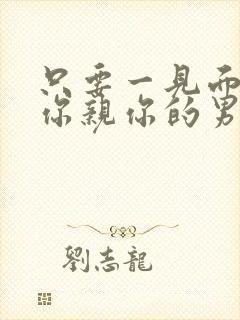 只要一見面
你親你的男
劉志龍